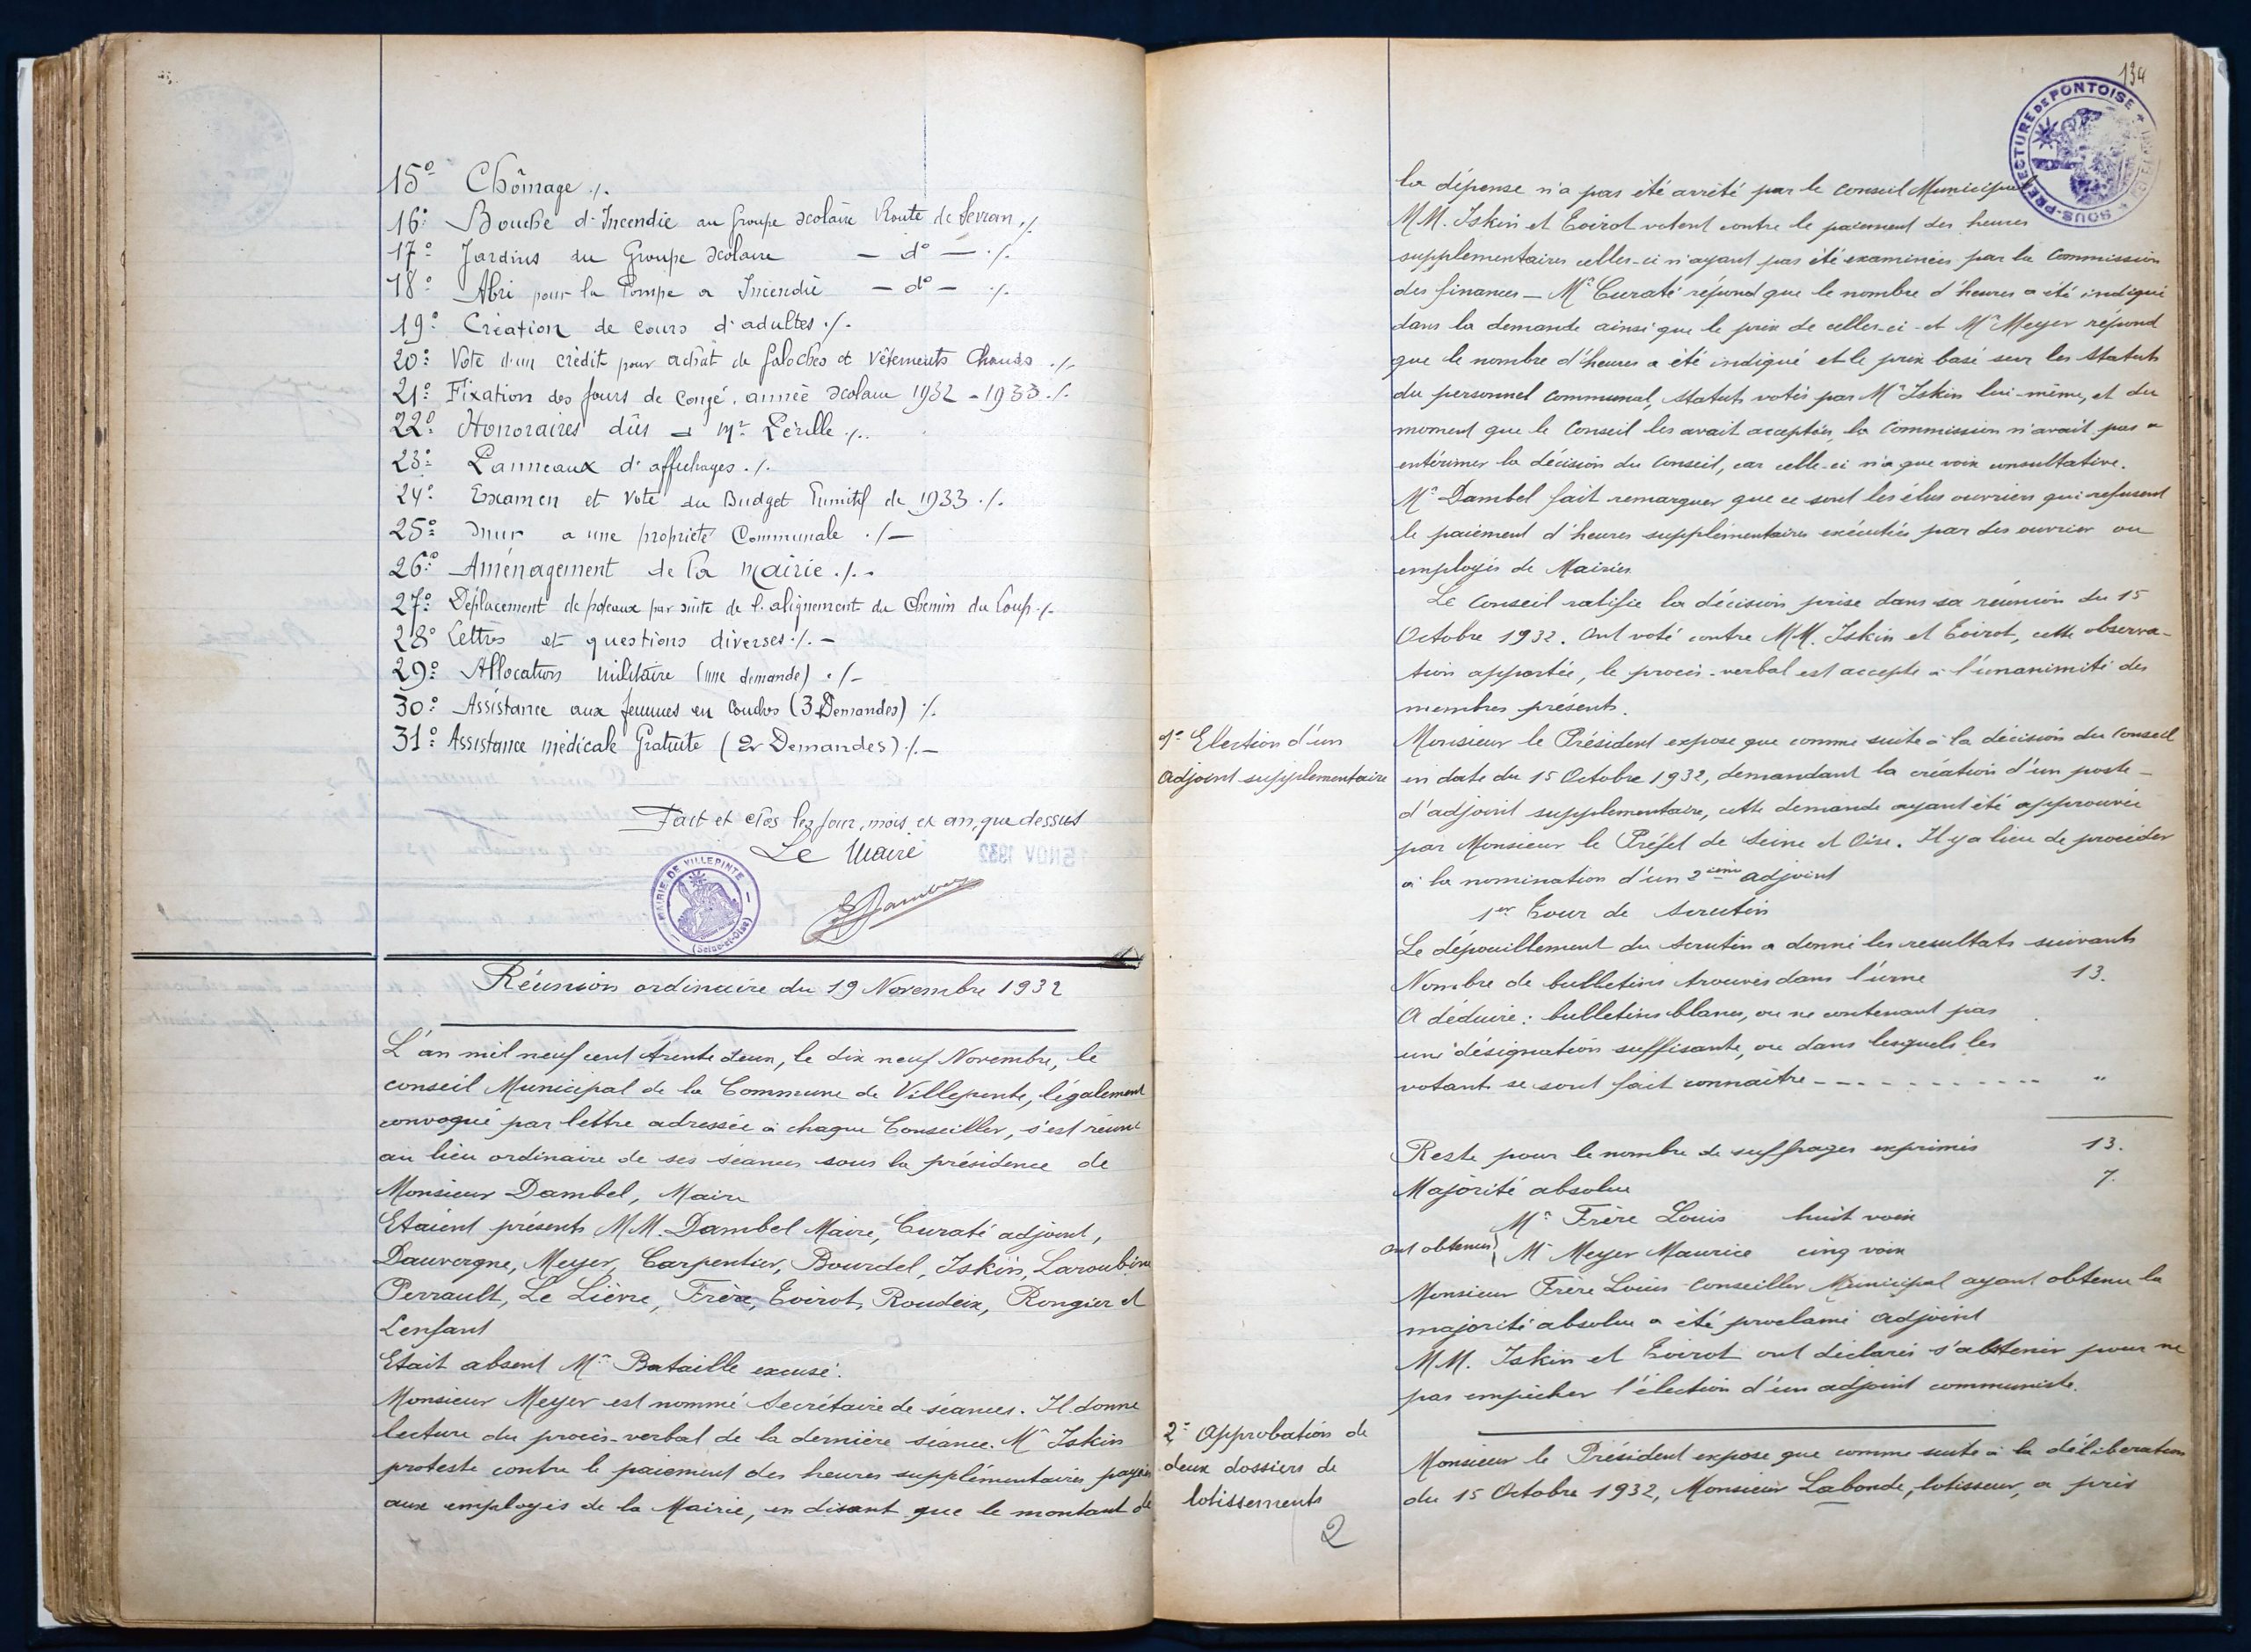 15° Chômage ./.
16° Bouche d'Incendie au Groupe scolaire Route de Sevran ./.
17° Jardins du Groupe scolaire — d° — ./.
18° Abri pour la Pompe a Incendie — d° — ./.
19° Création de cours d'adultes ./.
20° Vote d'un crédit pour achat de galoches et vêtements chauds ./.
21° Fixation des jours de Congé, année scolaire 1932 - 1933 ./.
22° Honoraires dûs à Mr
23° Panneaux d'affichages ./.
24° Examen et Vote du Budget Primitif de 1933 ./.
25° mur a une propriété Communale ./—
26° Aménagement de la Mairie ./. -
27° Déplacement de poteaux par suite de l'alignement du Chemin du Loup ./.
28° Lettres et questions diverses ./. -
29° Allocation militaire (une demande) ./-
30° Assistance aux femmes en couches (3 Demandes) ./.
31° Assistance médicale Gratuite (2 Demandes) ./. —
Fait et clos les jour, mois et an, que dessus
Le Maire
15 NOV 1932
MAIRIE DE VILLEPINTE
(Seine-et-Oise)
Réunion ordinaire du 19 Novembre 1932
L'an mil neuf cent trente deux, le dix neuf Novembre, le
conseil Municipal de la Commune de Villepinte, légalement
convoqué par lettre adressée à chaque Conseiller, s'est réuni
au lieu ordinaire de ses séances sous la présidence de
Monsieur Dambel, Maire
Etaient présents MM. Dambel Maire, Curaté adjoint,
Dauvergne, Meyer, Carpentier, Bourdel, Iskin, Laroubine
Perrault, Le Lièvre, Frère, Toirot, Roudeix, Rongier et
Lenfant
Etait absent Mr Bataille excusé.
Monsieur Meyer est nommé Secrétaire de séances. Il donne
lecture du procès-verbal de la dernière séance. Mr Iskin
proteste contre le paiement des heures supplémentaires payées
aux employés de la Mairie, en disant que le montant de
134
SOUS-PRÉFECTURE DE PONTOISE
la dépense n'a pas été arrêté par le Conseil Municipal
MM. Iskin et Toirot votent contre le paiement des heures
supplémentaires celles-ci n'ayant pas été examinées par la Commission
des finances — Mr Curaté répond que le nombre d'heures a été indiqué
dans la demande ainsi que le prix de celles-ci - et Mr Meyer répond
que le nombre d'heures a été indiqué et le prix basé sur les Statuts
du personnel Communal, Statuts votés par Mr Iskin lui-même, et du
moment que le Conseil les avait acceptés, la Commission n'avait pas a
entériner la décision du Conseil, car celle-ci n'a que voix consultative.
Mr Dambel fait remarquer que ce sont les élus ouvriers qui refusent
le paiement d'heures supplémentaires exécutées par des ouvrier ou
employés de Mairies
Le Conseil ratifie la décision prise dans sa réunion du 15
Octobre 1932. Ont voté contre MM. Iskin et Toirot, cette observa-
tion apportée, le procès-verbal est accepte à l'unanimité des
membres présents.
1° Election d'un
Adjoint supplémentaire
Monsieur le Président expose que comme suite à la décision du Conseil
en date du 15 Octobre 1932, demandant la création d'un poste -
d'adjoint supplémentaire, cette demande ayant été approuvée
par Monsieur le Préfet de Seine et Oise. Il y a lieu de procéder
à la nomination d'un 2ième adjoint
1er Tour de Scrutin
Le dépouillement du Scrutin a donné les resultats suivants
Nombre de bulletins trouvés dans l'urne 13.
A déduire : bulletins blancs, ou ne contenant pas
une désignation suffisante, ou dans lesquels les
votants se sont fait connaître - - - - - - - - - - - "
Reste pour le nombre de suffrages exprimés 13.
Majorité absolue 7.
Mr Frère Louis huit voix
Ont obtenus Mr Meyer Maurice cinq voix
Monsieur Frère Louis Conseiller Municipal ayant obtenu la
majorité absolue a été proclamé adjoint
MM. Iskin et Toirot ont déclarés s'abstenir pour ne
pas empêcher l'élection d'un adjoint communiste.
2° Approbation de
deux dossiers de
lotissements
2
Monsieur le Président expose que comme suite à la délibération
du 15 Octobre 1932, Monsieur Labonde, lotisseur, a pris